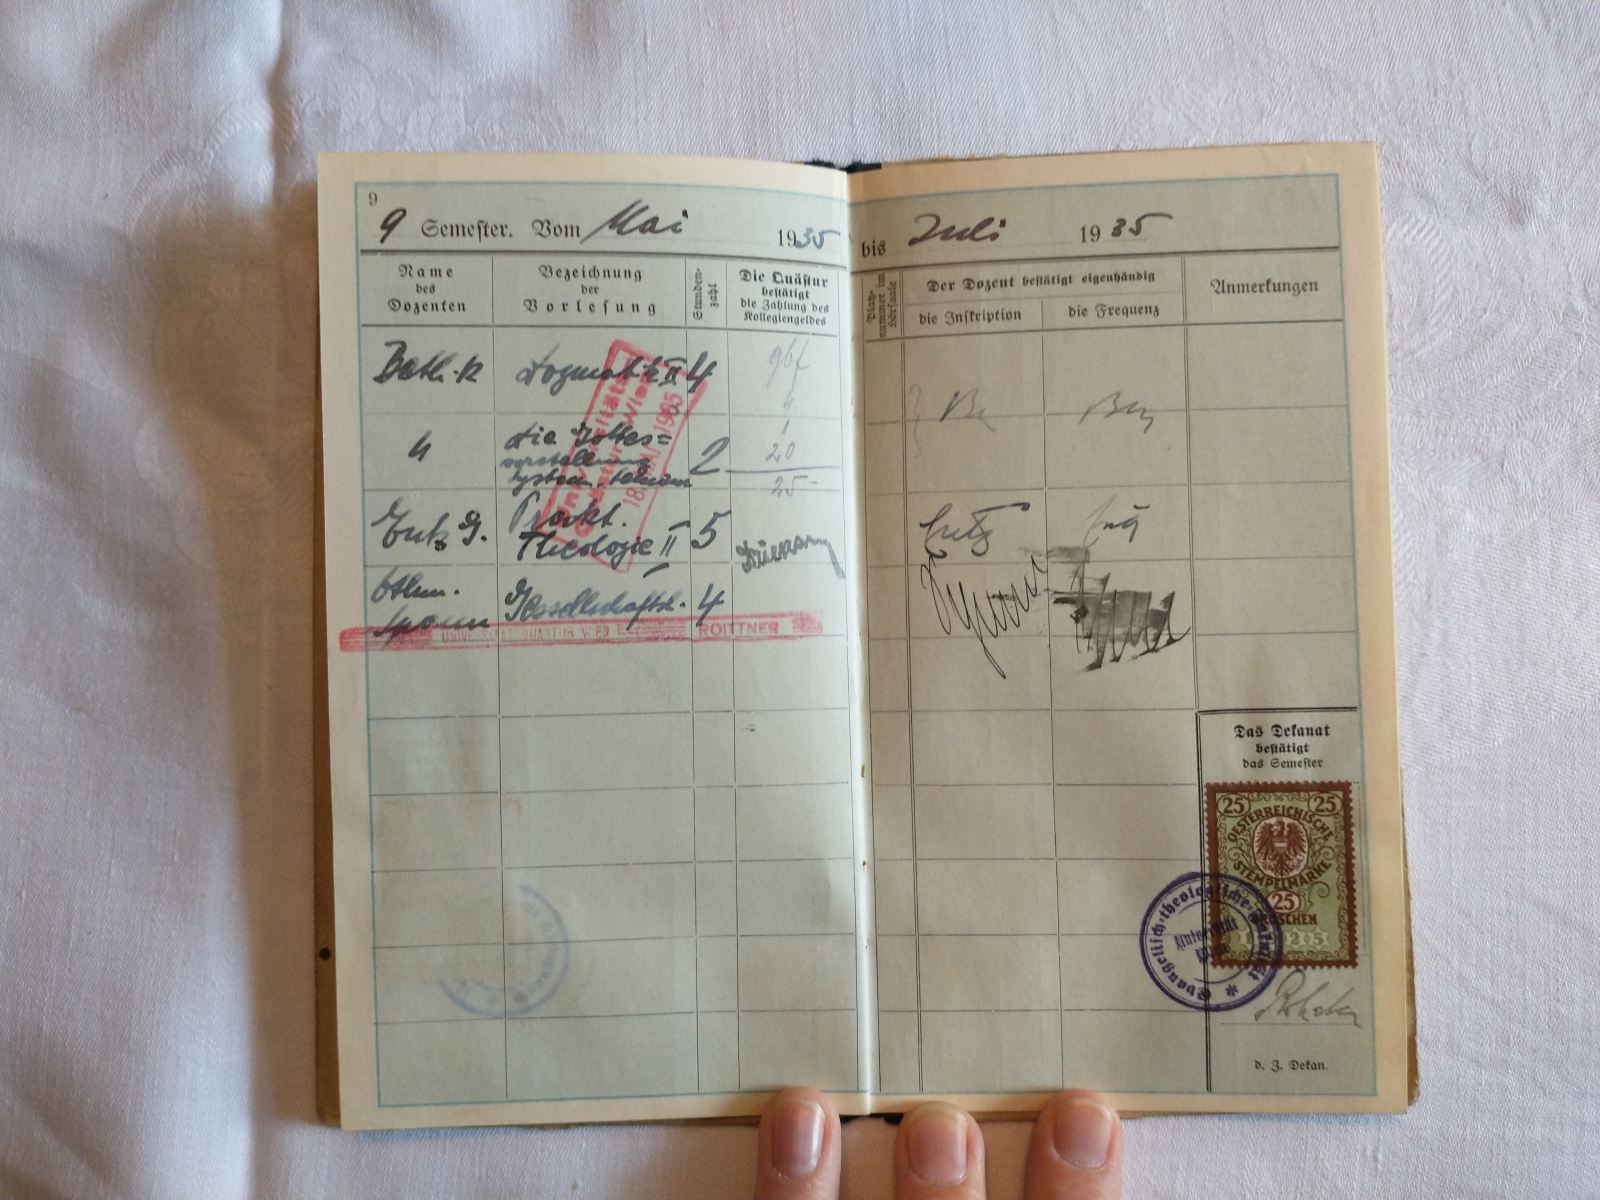 9
9 Semester. Vom Mai 1935
bis Juli 1935
Name
des
Dozenten
Bezeichnung
der
Vorlesung
Stunden-
zahl
Die Quästur
bestätigt
die Zahlung des
Kollegiengeldes
Platz-
nummer im
Hörsaale
Der Dozent bestätigt eigenhändig
die Inskription
die Frequenz
Anmerkungen
Dogmatik II 4
gbf
4
1
" Die Gottes=
vorstellung
2
20
25-
Entz G. Prakt.
Theologie II 5
Othm.
Spann Gesellschaftsl. 4
Universitäts
Quästur Wien
18. MAI 1935
UNIVERSITÄTSQUÄSTUR WIEN
ROITTNER
Das Dekanat
bestätigt
das Semester
25 25
OESTERREICHISCHE
STEMPELMARKE
25
GROSCHEN
1935
Evangelisch-theologische Fakultät
Universität
Wien
d. Z. Dekan.